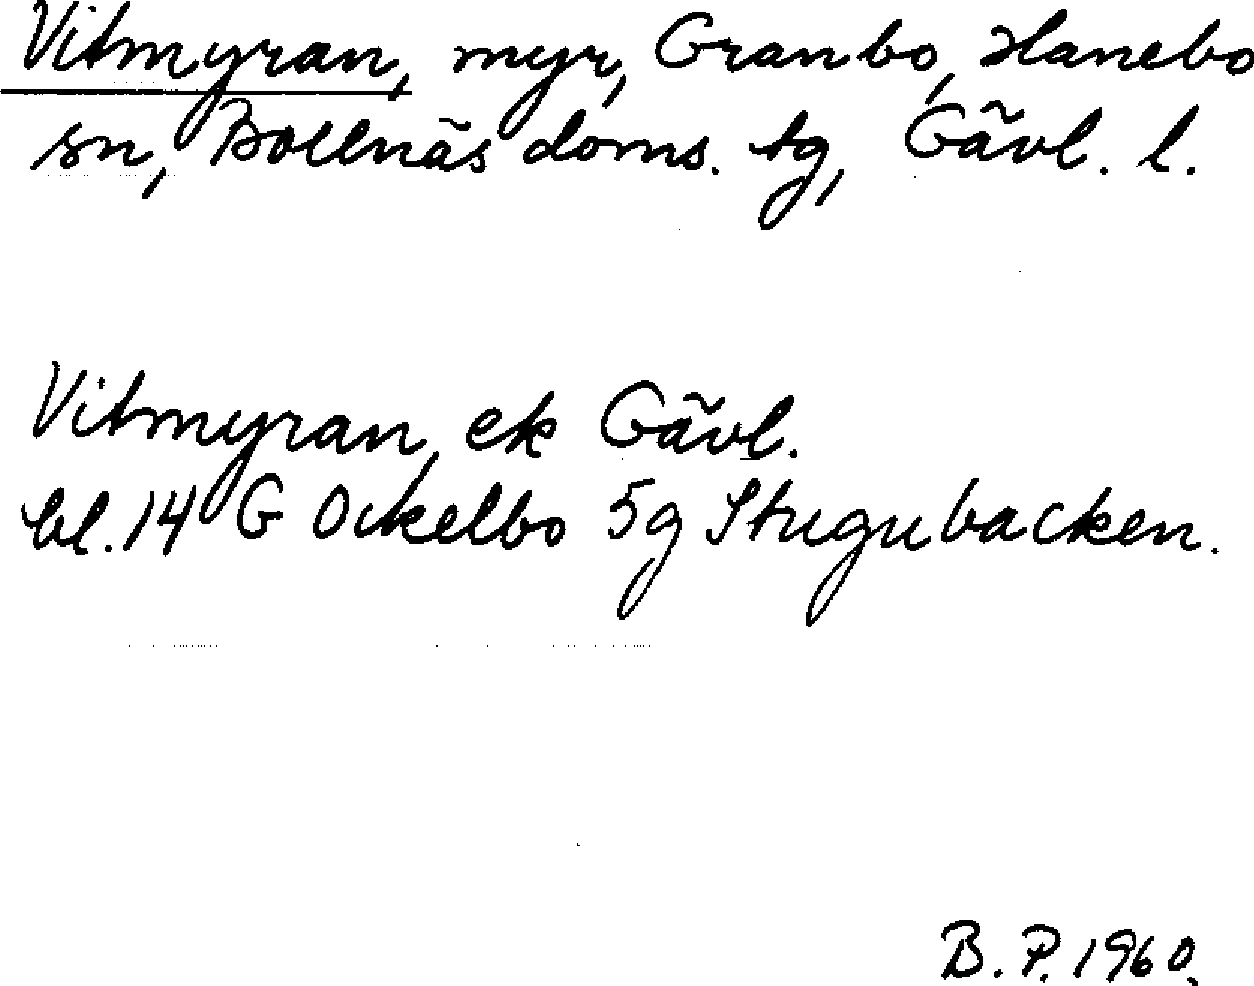 Vitmyran, myr, Granbo, Hanebo
sn, Bollnäs doms. tg, Gävl. l.
Vitmyran, ek Gävl.
bl. 14 G Ockelbo 5g Stugubacken.
B. P. 1960.